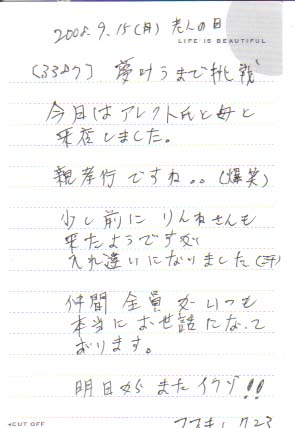 2008.9.15(月) 老人の日
LIFE IS BEAUTIFUL
夢叶うまで挑戦
今日はアレクト氏と母と
来店しました。
親孝行ですね。。(爆笑)
少し前にりんねさんも
来たようですが
入れ違いになりました(汗)
仲間全員がいつも
本当にお世話になって
おります。
明日からまたイクゾ!!
◂CUT OFF